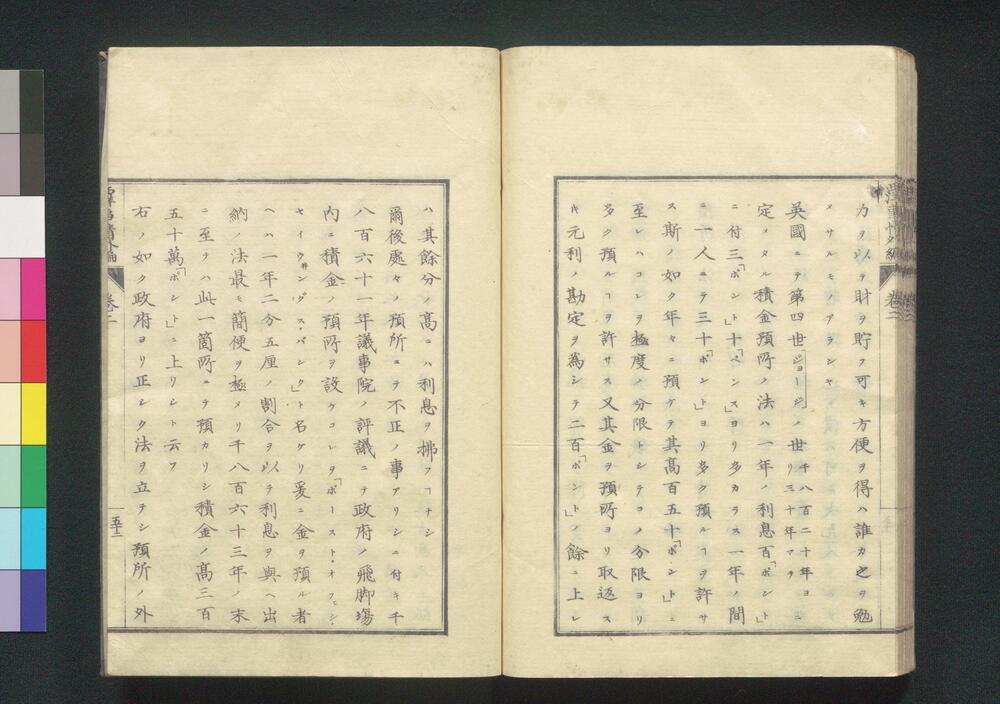 力ヲ以テ財ヲ貯フ可キ方便ヲ得ハ誰カ之ヲ勉
メサルモノアランヤ
英國ニテ第四世ジョージノ世千八百二十年ヨリ三十年マテニ
定メタル積金預所ノ法ハ一年ノ利息百「ポント」
ニ付三「ポント」十「ペンス」ヨリ多カラス一年ノ間
ニ一人ニテ三十「ポント」ヨリ多ク預ルヿヲ許サ
ス斯ノ如ク年々ニ預ケテ其高百五十「ポント」ニ
至レハコレヲ極度ノ分限トシテコノ分限ヨリ
多ク預ルヿヲ許サス又其金ヲ預所ヨリ取返ス
キ元利ノ勘定ヲ為シテ二百「ポント」ノ餘ニ上レ
ハ其餘分ノ高ニハ利息ヲ拂フヿナシ
爾後處々ノ預所ニテ不正ノ事アリシニ付キ千
八百六十一年議事院ノ評議ニテ政府ノ飛脚場
内ニ積金ノ預所ヲ設ケコレヲ「ポースト・オフェシ・
セイウ井ンヅス・バンク」ト名ケリ爰ニ金ヲ預ル者
ヘハ一年二分五厘ノ割合ヲ以テ利息ヲ與ヘ出
納ノ法最モ簡便ヲ極メリ千八百六十三年ノ末
ニ至テハ此一箇所ニテ預カリシ積金ノ高三百
五十萬「ポント」ニ上リシト云フ
右ノ如ク政府ヨリ正シク法ヲ立テシ預所ノ外
卷二
五十三